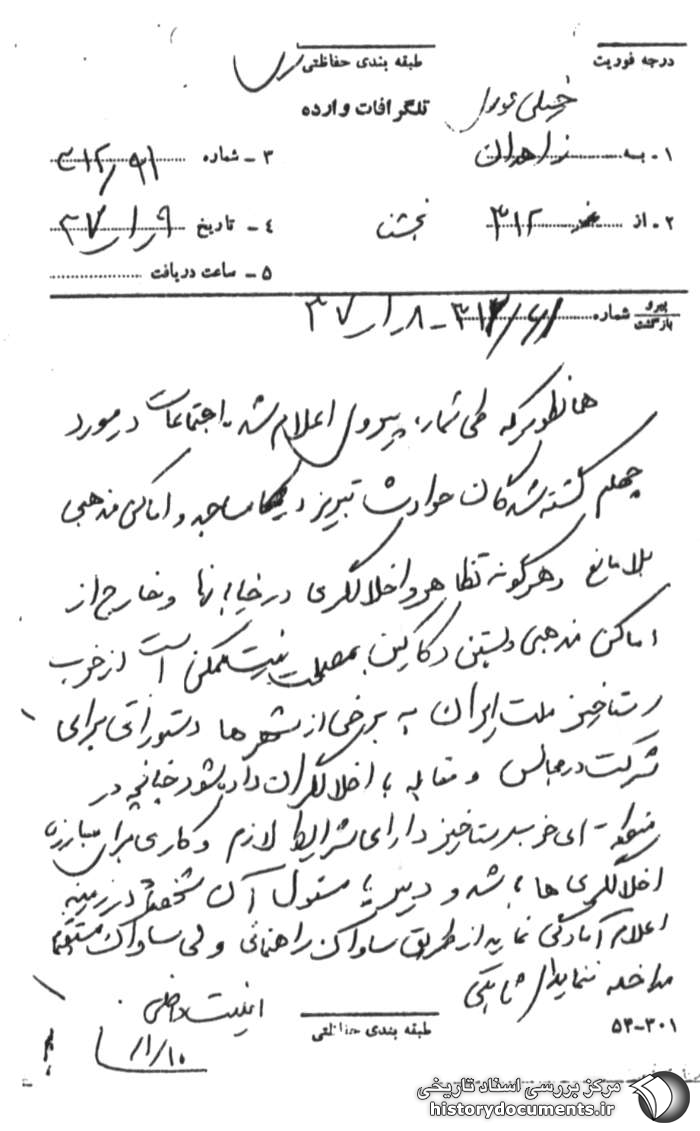 درجه فوریت
طبقه بندی حفاظتی
خیلی فوری
تلگرافات وارده
۱ـ به زاهدان
۳ ـ شماره ۳۱۲/۹۱
۲ ـ از ۳۱۲
بخش
٤ ـ تاریخ ۹ ر ۱ ر ۳۷
٥ ـ ساعت دریافت
پیرو
بازگشت شماره ۳۱۲/ ـ ۸ ر ۱ ر ۳۷
همانطوریکه طی شماره پیروی اعلام شد. اجتماعات در مورد
چهلم کشته شدگان حوادث تبریز در مساجد و اماکن مذهبی
بلامانع و هرگونه تظاهر و اخلالگری در خیابانها و خارج از
اماکن مذهبی و بستن دکاکین بمصلحت نیست ممکن است از حزب
رستاخیز ملت ایران به برخی از شهرها دستوراتی برای
شرکت در مجالس و مقابله با اخلالگران داده بشود چنانچه در
منطقه ای حزب رستاخیز دارای شرایط لازم و کاری برای مبارزه با
اخلالگری ها باشد و دبیر یا مسئول آن شخصاً در زمینه
اعلام آمادگی نماید از طریق ساواک راهنمائی ولی ساواک مستقیماً
مداخله ننماید. ثابتی
امنیت داخلی
۱/۱۰
طبقه بندی حفاظتی
۵۳-۳۰۱
مرکز بررسی اسناد تاریخی
historydocuments.ir